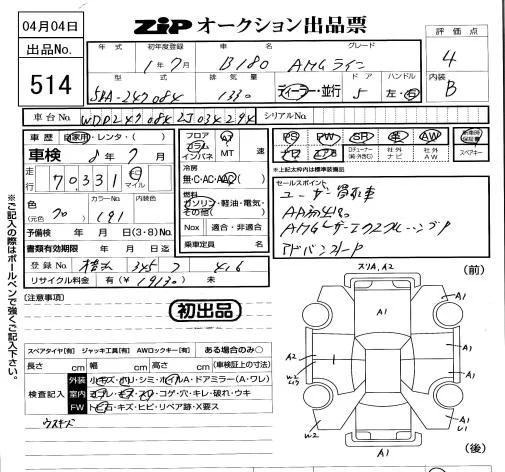 04月04日
ZiP オークション出品票
出品No.
514
年式 初年度登録 車名 グレード
1年7月 B180 AMGライン
型式 排気量 ドア ハンドル
5BA-247084 1330 ディーラー・並行 5 左・右
評価点
4
内装
B
車台No. WDD2470842J034294 シリアルNo.
車歴 自家用・レンタ・( )
車検 8年7月
走行 70,331 km マイル
色 (元色) クロ カラーNo. 191 内装色
予備検 年 月 日(3・8)No.
書類有効期限 年 月 日迄
登録No. 横浜 345 フ 416
リサイクル料金 有(¥19130) 未
フロア コラム インパネ AT MT 速
冷房 無・C・AC・AAC( )
燃料 ガソリン・軽油・電気・その他( )
Nox 適合・非適合
乗車定員 名
PS PW SR 革 AW 新車時保証書
Dチューナー(純・外含C) 社外ナビ 社外AW スペアキー
※上記太枠内は標準装備品
セールスポイント
ユーザー買取車
AA初出品
AMGレザーエクスクルーシブP
アドバンスドP
(注意事項)
初出品
スペアタイヤ【有】 ジャッキ工具【有】 AWロックキー【有】 ある場合のみ○
長さ cm 幅 cm 高さ cm (車検証上の寸法)
検査記入
外装 小キズ・ホリ・シミ・ホイルA・ドアミラー(A・ワレ)
室内 ヨゴレ・キズ・スレ・コゲ・穴・キレ・破れ・ウキ
FW トビ石・キズ・ヒビ・リペア跡・X要ス
ウスキズ
※ご記入の際はボールペンで強くご記入下さい。
スリA, A2
(前)
A1
A1
A1
A2
W2
A1
A1
W2
A1
A1
(後)